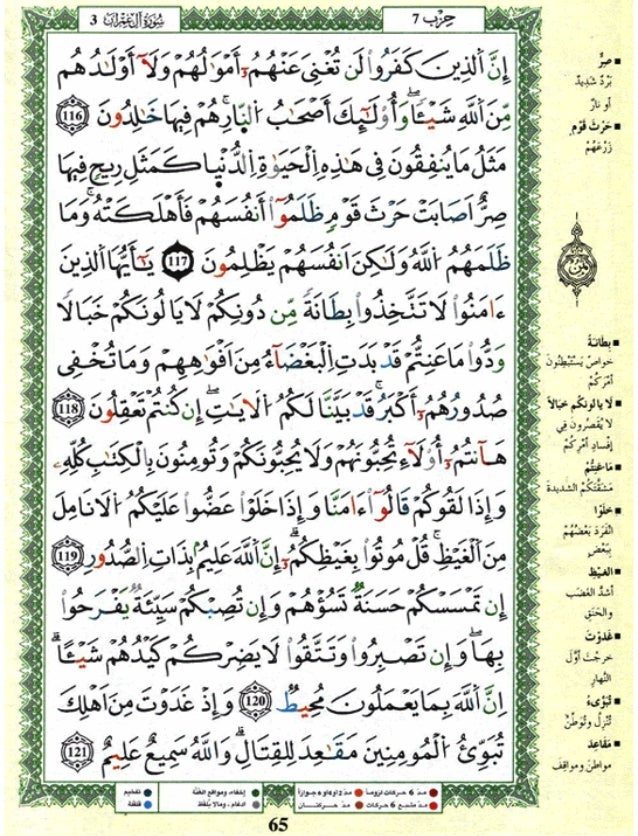 حِزْب 7
سُورَةُ آلِ عِمْرَان 3
إِنَّ اَ۬لذِينَ كَفَرُواْ لَن تُغْنِيَ عَنْهُمُۥٓ أَمْوَٰلُهُمْ وَلَآ أَوْلَٰدُهُم
مِّنَ اَ۬للَّهِ شَيْـٔاٗۖ وَأُوْلَٰٓئِكَ أَصْحَٰبُ اُ۬لنّ۪ارِۖ هُمْ فِيهَا خَٰلِدُونَ 116
مَثَلُ مَا يُنفِقُونَ فِے هَٰذِهِ اِ۬لْحَيَوٰةِ اِ۬لدُّنْي۪ا كَمَثَلِ رِيحٖ فِيهَا
صِرٌّ اَصَابَتْ حَرْثَ قَوْمٖ ظَلَمُوٓاْ أَنفُسَهُمْ فَأَهْلَكَتْهُۖ وَمَا
ظَلَمَهُمُ اُ۬للَّهُ وَلَٰكِنَ اَنفُسَهُمْ يَظْلِمُونَ 117 يَٰٓأَيُّهَا اَ۬لذِينَ
ءَامَنُواْ لَا تَتَّخِذُواْ بِطَانَةٗ مِّن دُونِكُمْ لَا يَالُونَكُمْ خَبَالاٗ
وَدُّواْ مَا عَنِتُّمْ قَدْ بَدَتِ اِ۬لْبَغْضَآءُ مِنَ اَفْوَٰهِهِمْ وَمَا تُخْفِے
صُدُورُهُمُۥٓ أَكْبَرُۖ قَدْ بَيَّنَّا لَكُمُ اُ۬لَايَٰتِۖ إِن كُنتُمْ تَعْقِلُونَ 118
هَٰٓانتُمُۥٓ أُوْلَآءِ تُحِبُّونَهُمْ وَلَا يُحِبُّونَكُمْ وَتُومِنُونَ بِالْكِتَٰبِ كُلِّهِۦ
وَإِذَا لَقُوكُمْ قَالُوٓاْ ءَامَنَّا وَإِذَا خَلَوْاْ عَضُّواْ عَلَيْكُمُ اُ۬لَانَامِلَ
مِنَ اَ۬لْغَيْظِۖ قُلْ مُوتُواْ بِغَيْظِكُمُۥٓۖ إِنَّ اَ۬للَّهَ عَلِيمُۢ بِذَاتِ اِ۬لصُّدُورِ 119
إِن تَمْسَسْكُمْ حَسَنَةٞ تَسُؤْهُمْ وَإِن تُصِبْكُمْ سَيِّئَةٞ يَفْرَحُواْ
بِهَاۖ وَإِن تَصْبِرُواْ وَتَتَّقُواْ لَا يَضِرْكُمْ كَيْدُهُمْ شَيْـٔاًۖ
اِنَّ اَ۬للَّهَ بِمَا يَعْمَلُونَ مُحِيطٞ 120 وَإِذْ غَدَوْتَ مِنَ اَهْلِكَ
تُبَوِّئُ اُ۬لْمُومِنِينَ مَقَٰعِدَ لِلْقِتَالِۖ وَاللَّهُ سَمِيعٌ عَلِيمٌ 121
■ صِرٌّ
بَرْدٌ شَدِيدٌ
أو نارٌ
■ حَرْثَ قَوْمٍ
زَرْعَهُمْ
■ بِطَانَةً
خواصَّ يَسْتَبْطِنُونَ
أمْرَكُمْ
■ لَا يالونكم خبالاً
لا يُقَصِّرُونَ فِي
إفْسَادِ أمْرِكُمْ
■ مَا عَنِتُّمْ
مَشَقَّتَكُمُ الشديدةَ
■ خَلَوْا
انْفَرَدَ بَعْضُهُمْ
بِبَعْضٍ
■ الغيْظِ
أشَدِّ الغَضَب
والحَنَقِ
■ غَدَوْتَ
خَرجْتَ أوَّلَ
النَّهارِ
■ تُبَوِّىءُ
تُنْزِلُ وتُوَطِّنُ
■ مَقَاعِدَ
مواطِنَ ومواقِفَ
مدّ 6 حركات لزوماً
مدّ 2 أو 4 أو 6 جوازاً
إخفاء، ومواقع الغنّة
تفخيم
مدّ مشبع 6 حركات
مدّ حركتان
ادغام، ومالا يلفظ
قلقلة
65